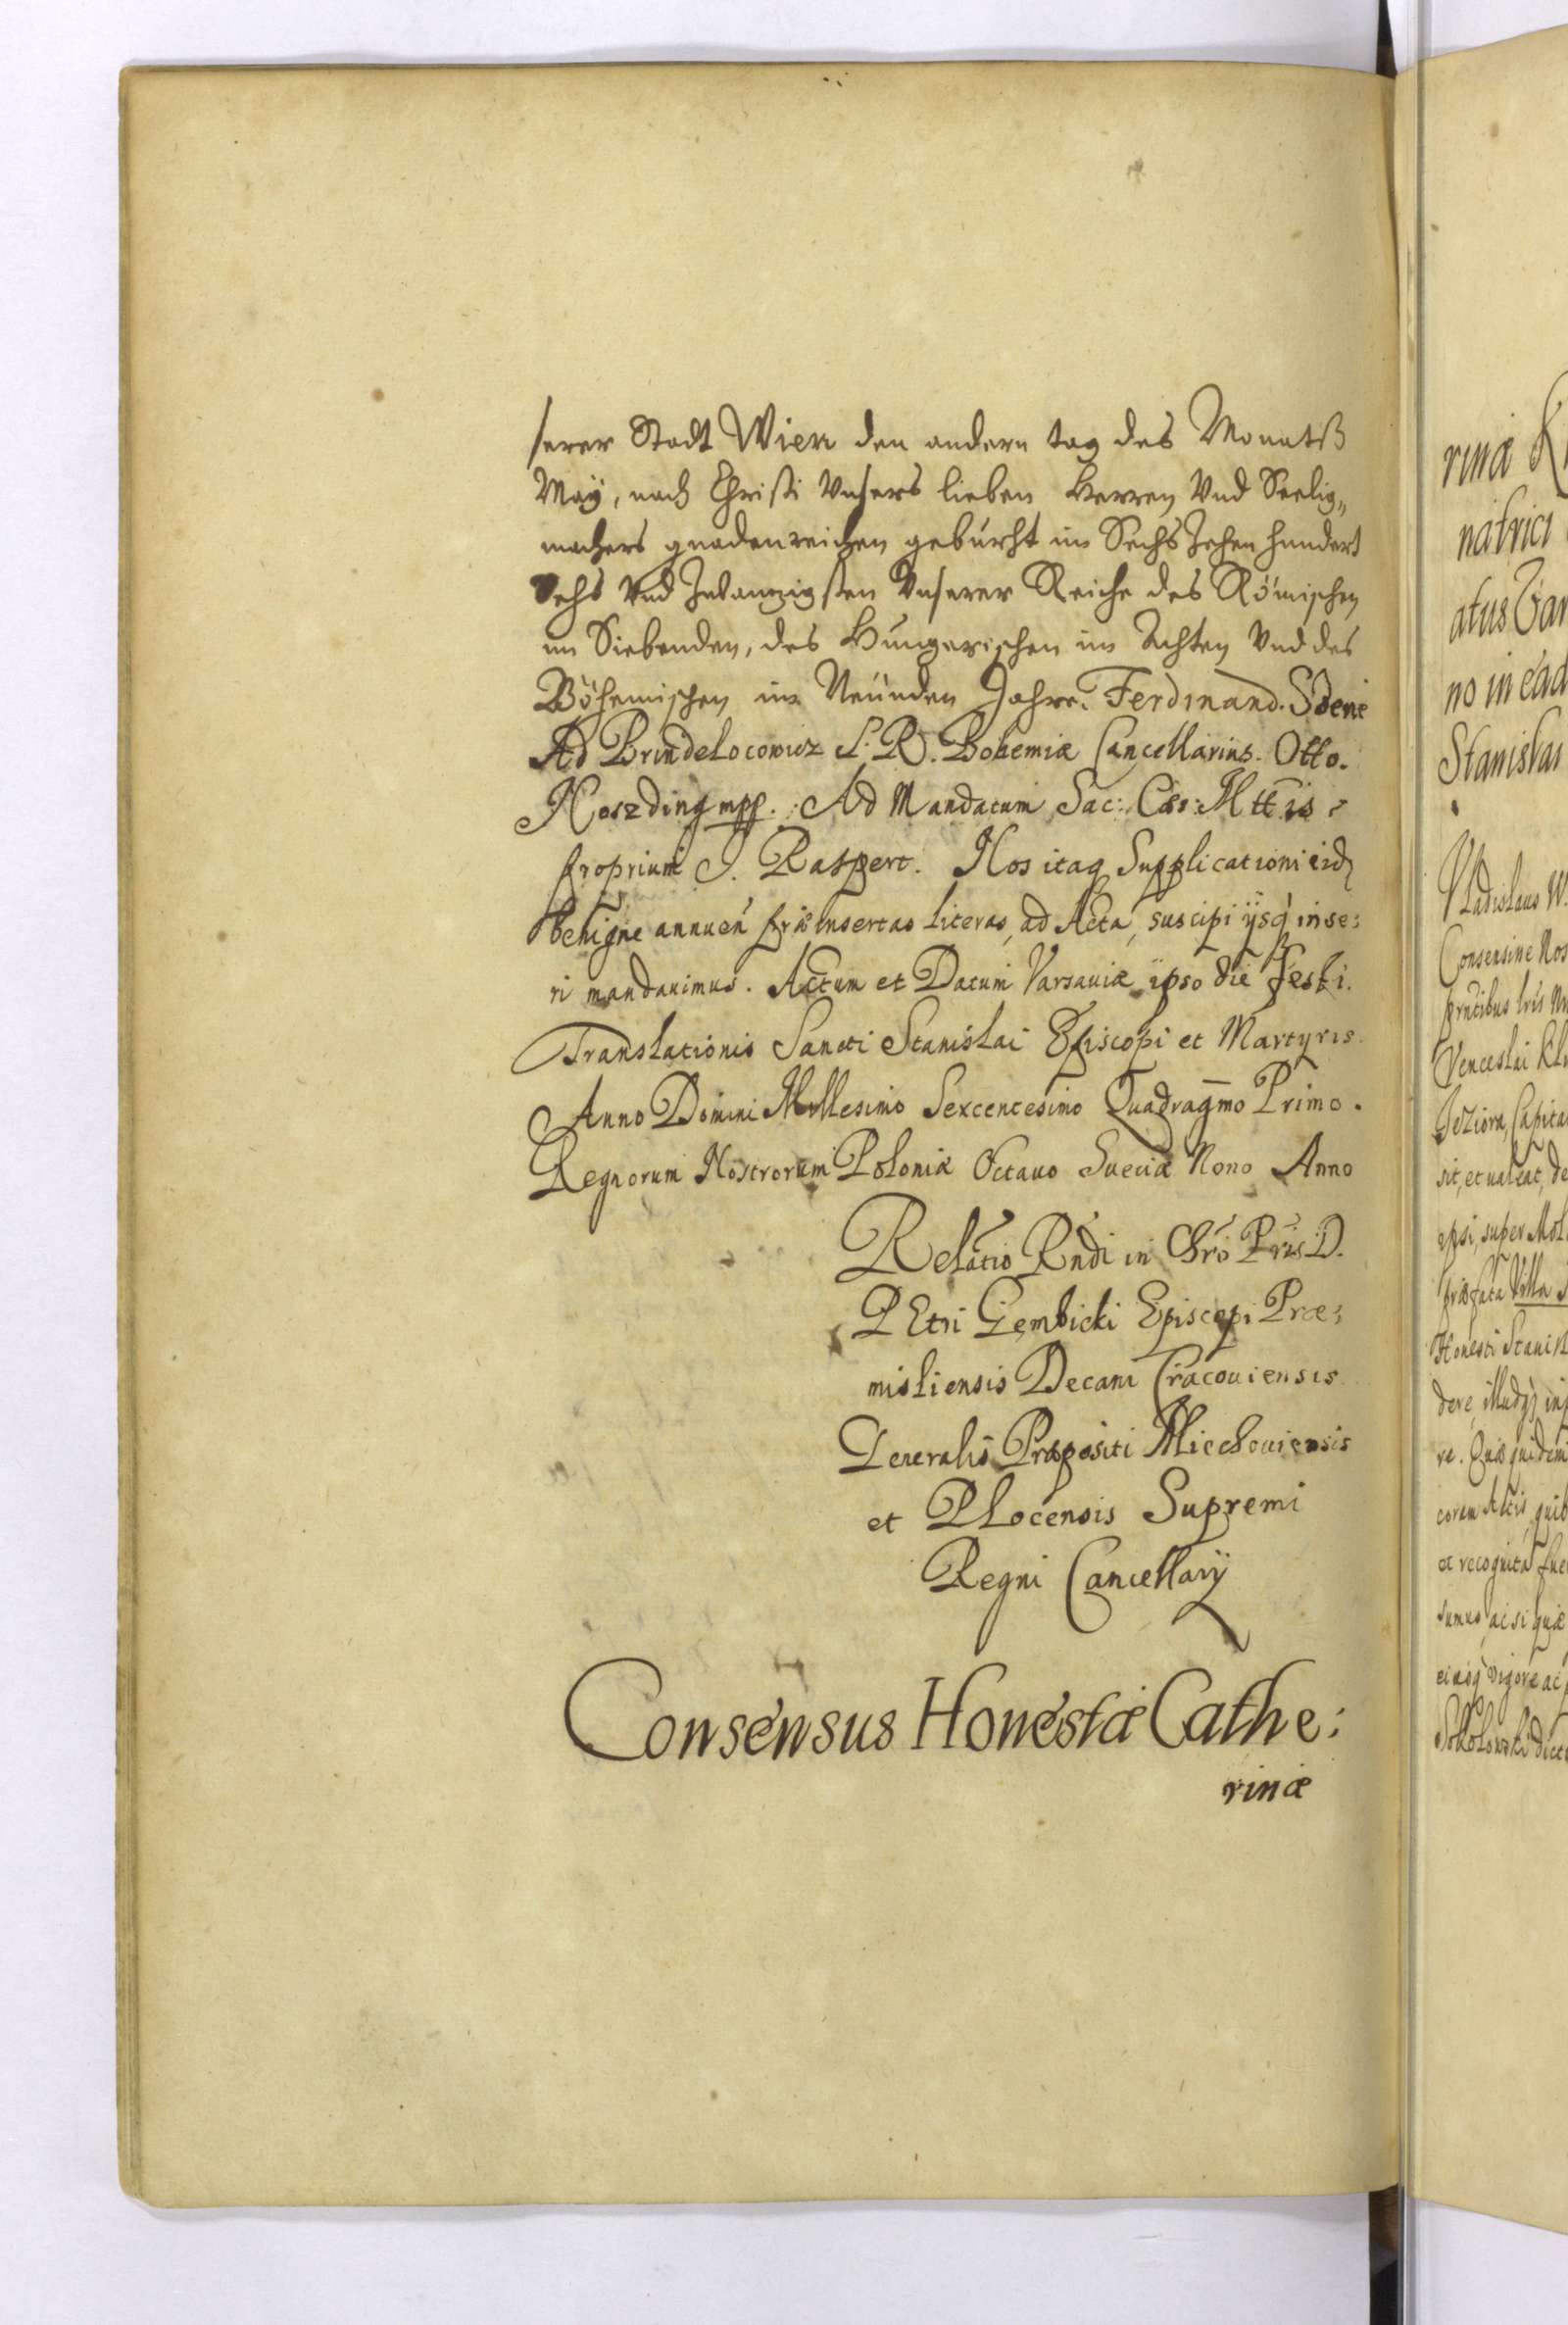 serer Stadt Wien den andern tag des Monatß
Maÿ, nach Christi Vnsers lieben Herren Vnd Seelig„
machers gnadenreichen geburht im Sechs Zehen hundert
Sechs Vnd Zwantzigsten Vnserer Reiche des Römischen
im Siebenden, des Hungarischen im Achten Vnd des
Böhemischen im Neünden Jahre. Ferdinand. Sdene
Ad Brindelocowicz S. R. Bohemiæ Cancellarius. Otto.
Noszding mpp. Ad Mandatum Sac: Cæs: Mttis
proprium J. Raspert. Nos itaq Supplicationi eid
benigne annuen præinsertas literas, ad Acta, suscipi ijsq inse:
ri mandauimus. Actum et Datum Varsauiæ ipso die festi.
Translationis Sancti Stanislai Episcopi et Martyris.
Anno Domini Millesimo Sexcentesimo Quadragmo Primo.
Regnorum Nostrorum Poloniæ Octauo Sueciæ Nono Anno
Relatio Rndi in Chro Pris D.
PEtri Gembicki Episcopi Præ:
misliensis Decani Cracouiensis
Generalis Præpositi Miechouiensis
et Plocensis Supremi
Regni Cancellarÿ
Consensus Honestæ Cathe:
rinæ
rinæ
natrici
atus
no in ead
Stanislai
Vladislaus
Consensine Nos
Venceslai
Jeziora, Capita
sit, et ualeat, de
epsi, super
præfata Villa
Honesti Stanis
dere, illudq
re. Quæ quidem
coram Actis, quib
recognita fue
sumus, ac si quæ
eiusq vigore ac
Sokolowski dicta